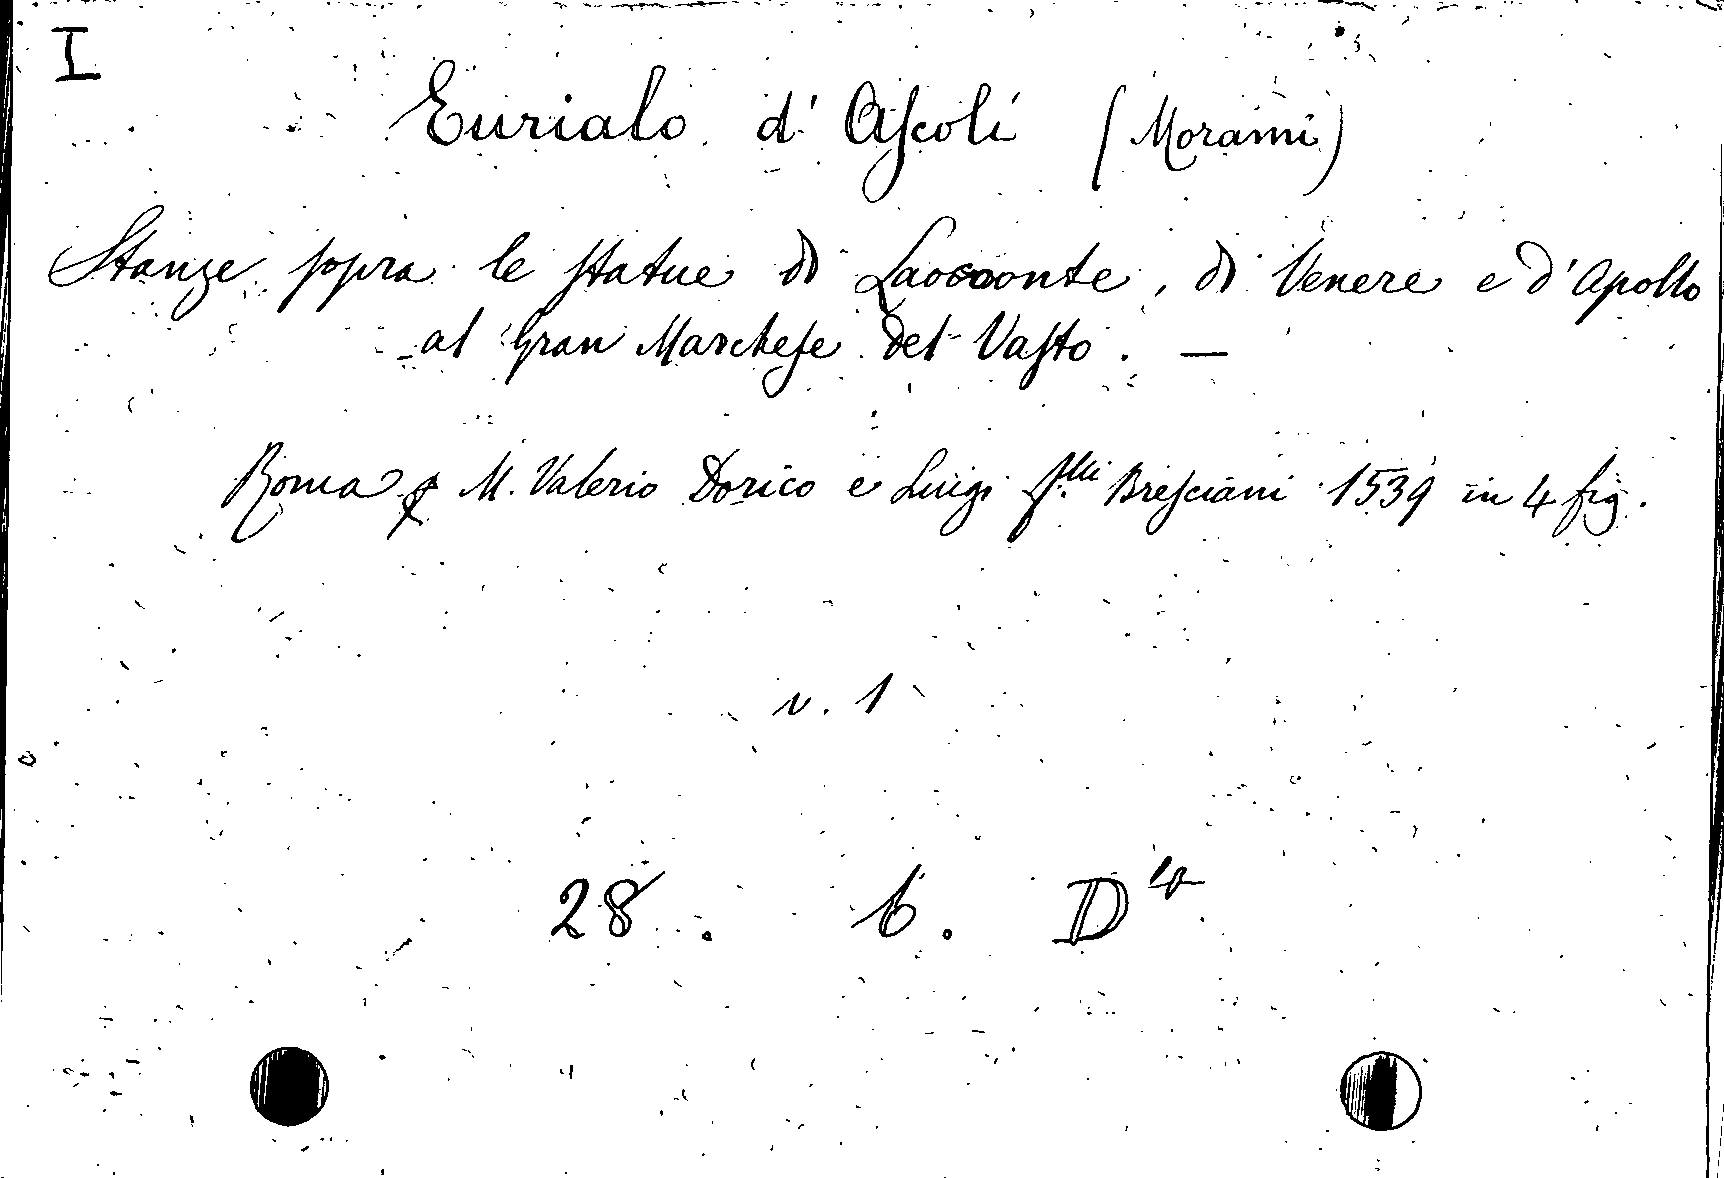 I
Eurialo d'Ascoli (Morani)
Stanze sopra le statue di Laocoonte, di Venere e d'Apollo
al Gran Marchese del Vasto. —
Roma p M. Valerio Dorico e Luigi f.lli Bresciani 1539 in 4 fig.
v. 1
28. 6. D